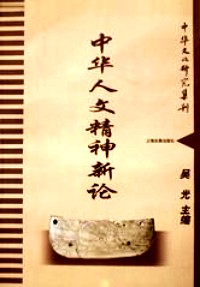 中华文化研究集刊
中华人文精神新论
上海古籍出版社
吴光 主编